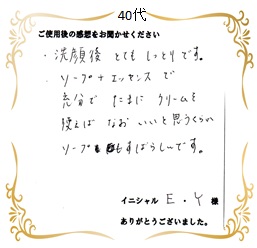 40代
ご使用後の感想をお聞かせください
・洗顔後 とても しっとりです。
・ソープ+エッセンスで
充分で たまに クリームを
使えば なお いいと思うくらい
ソープも すばらしいです。
イニシャル E・Y 様
ありがとうございました。